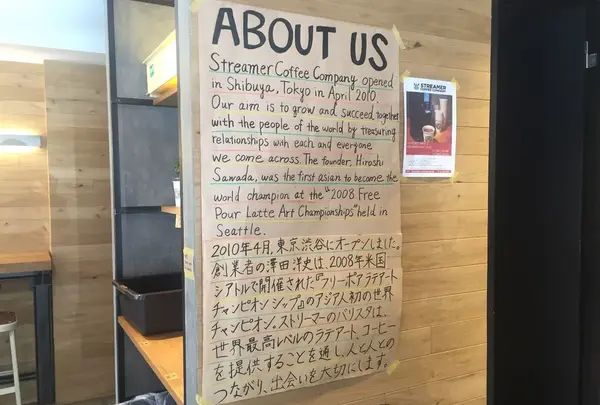 ABOUT US
Streamer Coffee Company opened
in Shibuya, Tokyo in April 2010.
Our aim is to grow and succeed together
with the people of the world by treasuring
relationships with each and everyone
we come across. The founder, Hiroshi
Sawada, was the first asian to become the
world champion at the "2008 Free
Pour Latte Art Championships" held in
Seattle.
2010年4月、東京渋谷にオープンしました。
創業者の澤田洋史は、2008年米国
シアトルで開催された『フリーポアラテアート
チャンピオンシップ』のアジア人初の世界
チャンピオン。ストリーマーのバリスタは、
世界最高レベルのラテアート、コーヒー
を提供することを通し、人と人との
つながり、出会いを大切にします。
STREAMER
COFFEE COMPANY